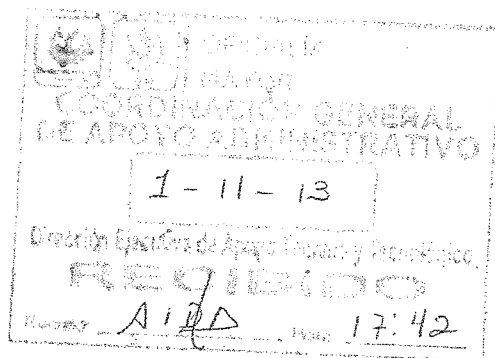 OFICIALÍA
MAYOR
COORDINACIÓN GENERAL
DE APOYO ADMINISTRATIVO
1 - 11 - 13
Dirección Ejecutiva de Apoyo Técnico y Tecnológico
RECIBIDO
Nombre AIDA Hora: 17:42